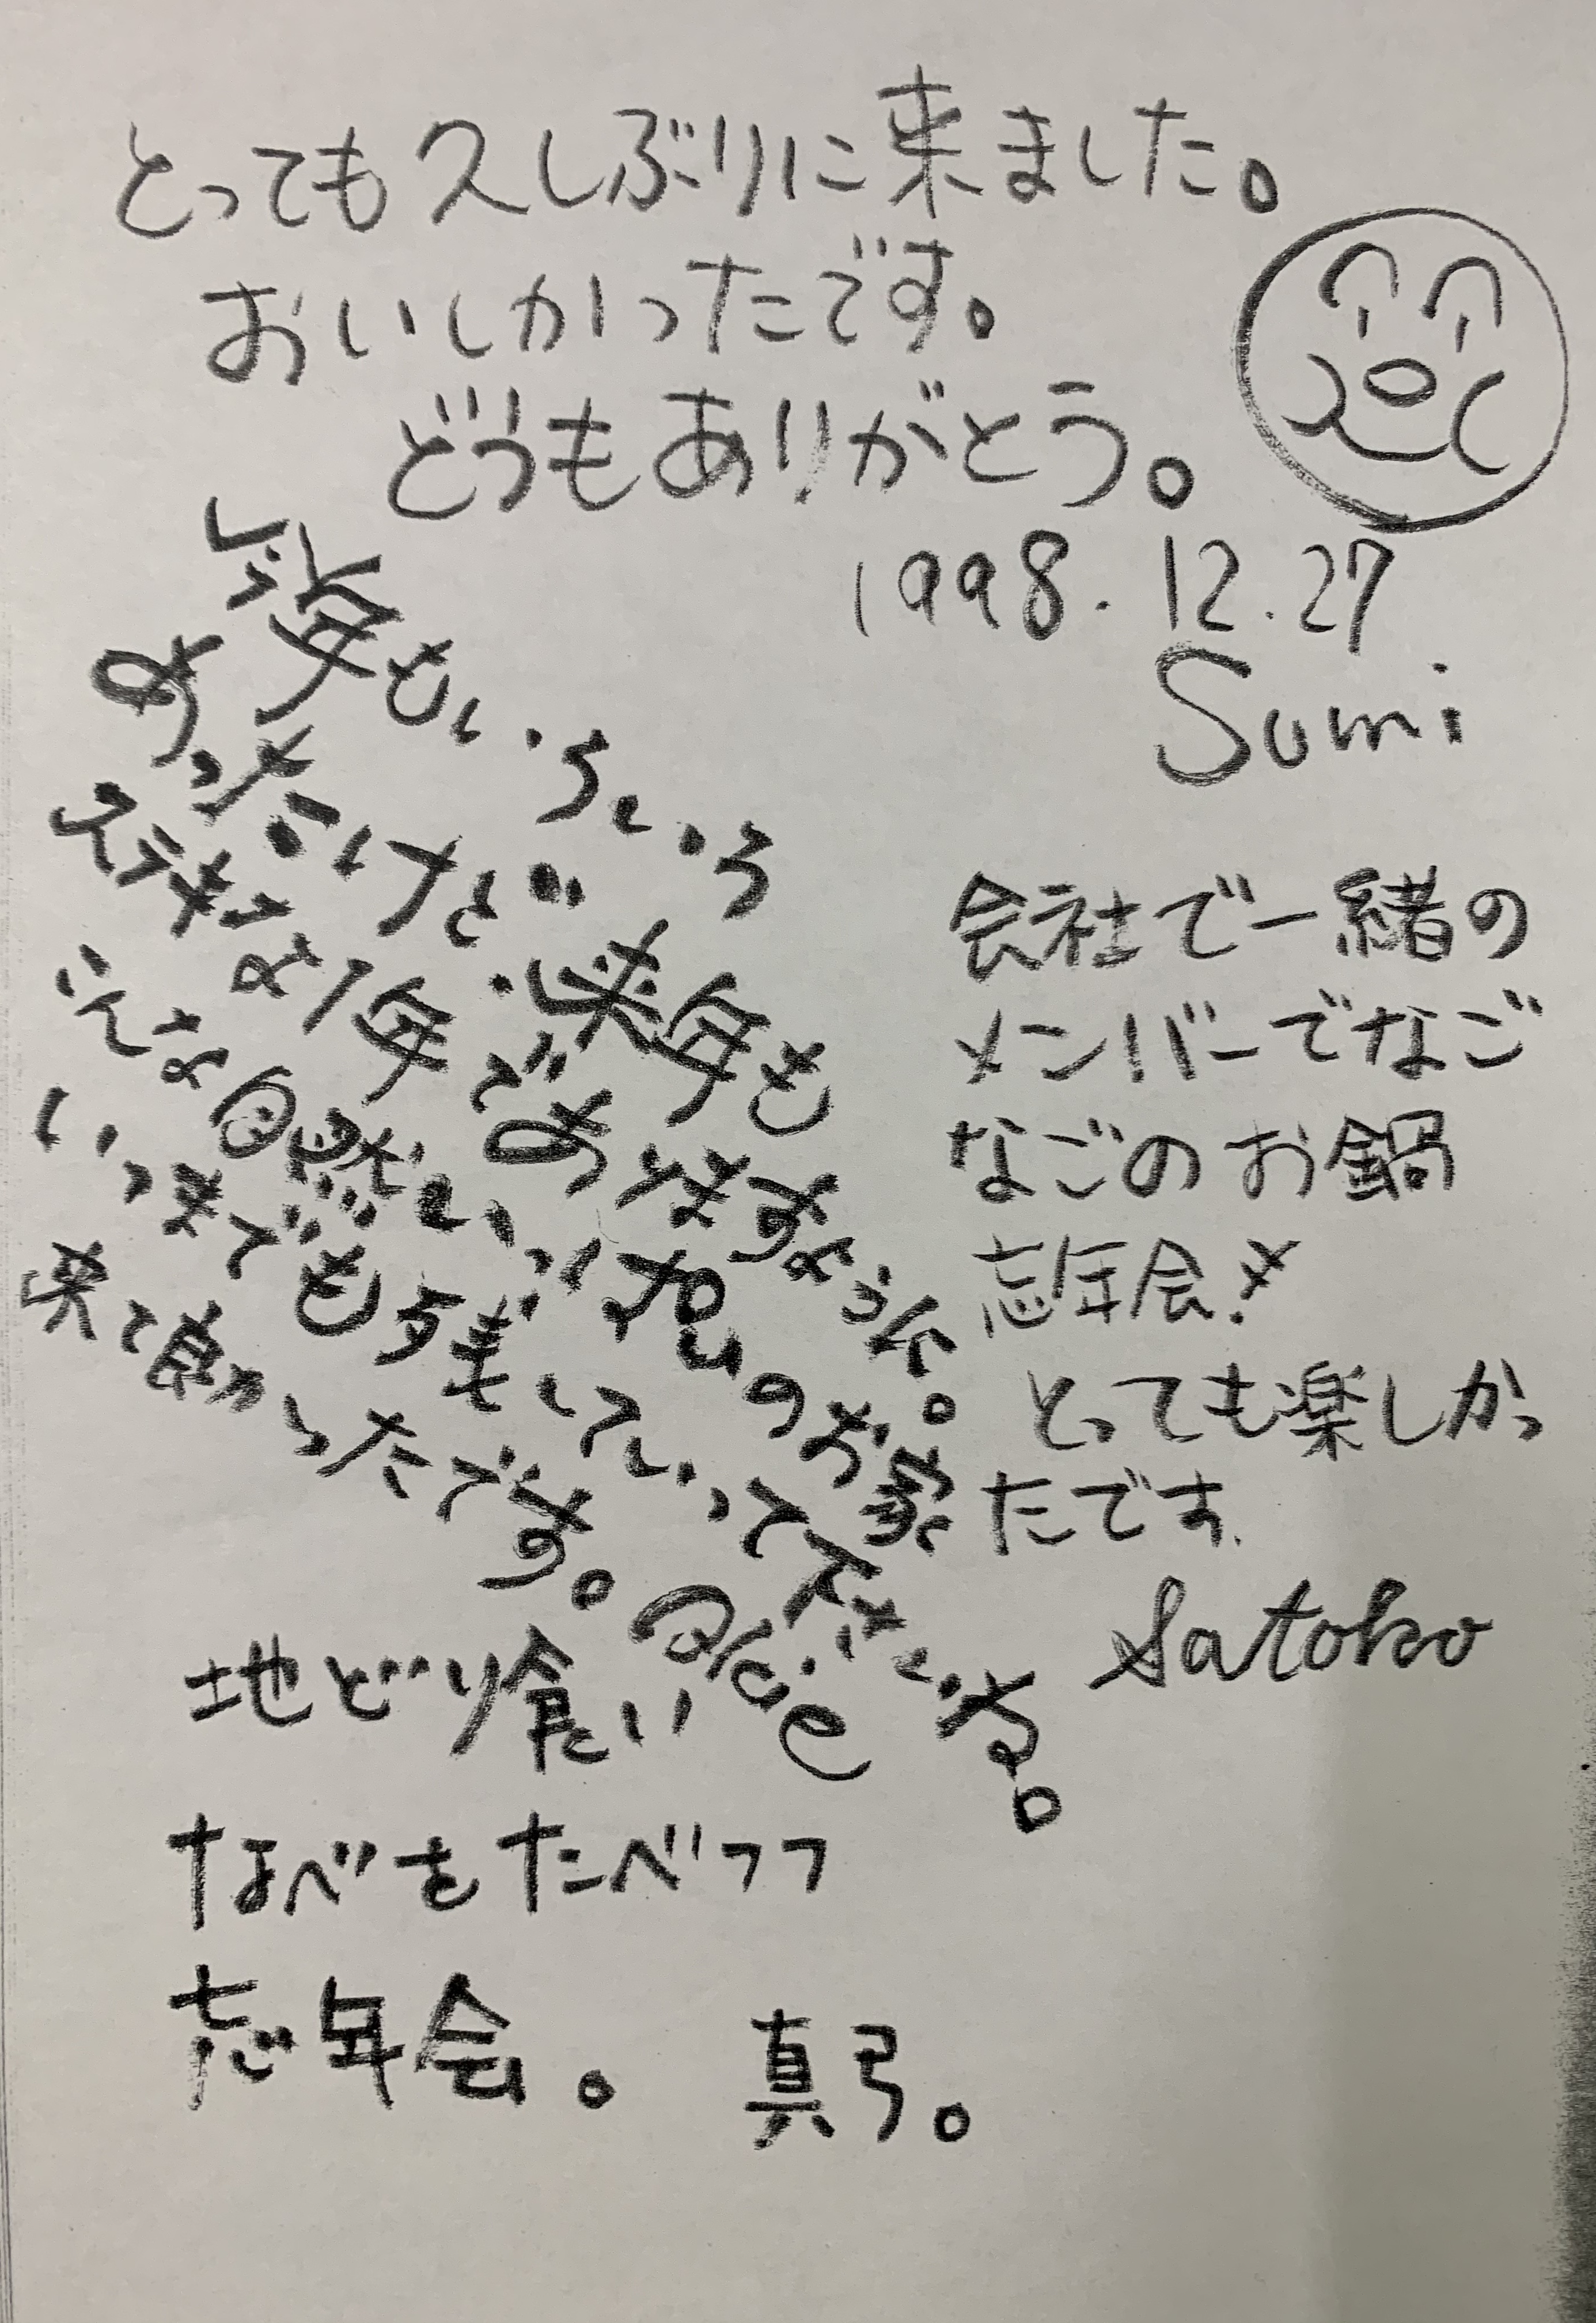 とっても久しぶりに来ました。
おいしかったです。
どうもありがとう。
1998.12.27
Sumi
今年もいろいろ
あったけど、来年も
ステキな1年でありますように。
こんな自然いっぱいのお家
いつまでも残していって下さいね。
来て良かったです。
会社で一緒の
メンバーでなご
なごのお鍋
忘年会!!
とっても楽しかっ
たです
Satoko
地どり食い
なべをたべつつ
忘年会。 真弓。